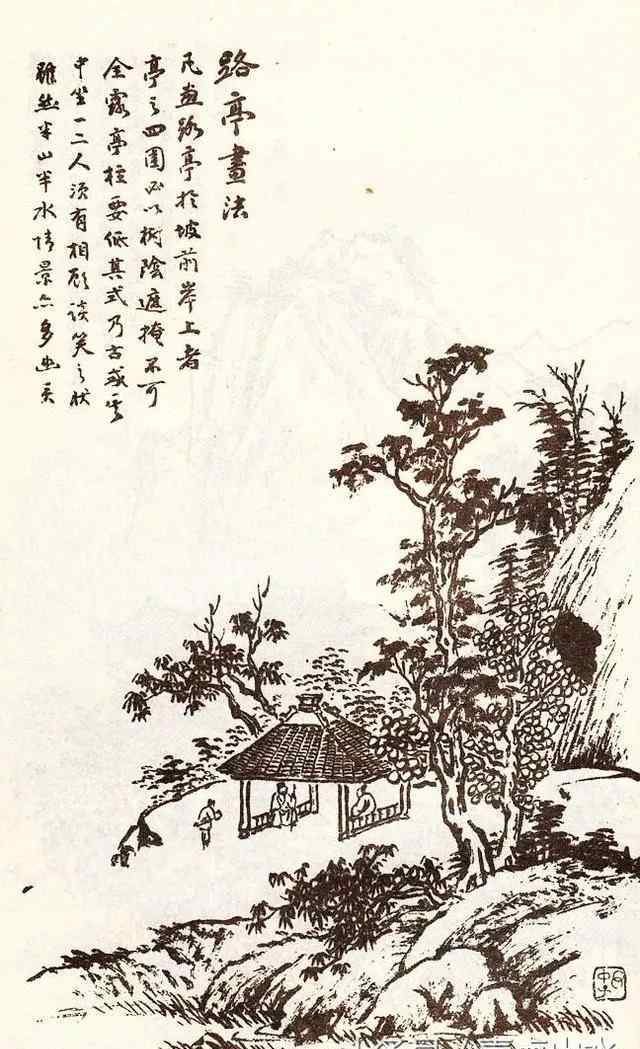 路亭畫法
凡畫路亭於坡前岸上者
亭之四圍必以樹陰遮掩不可
全露亭柱要低其式乃古或
中坐一二人須有相顧談笑之狀
雖然半山半水情景亦多幽